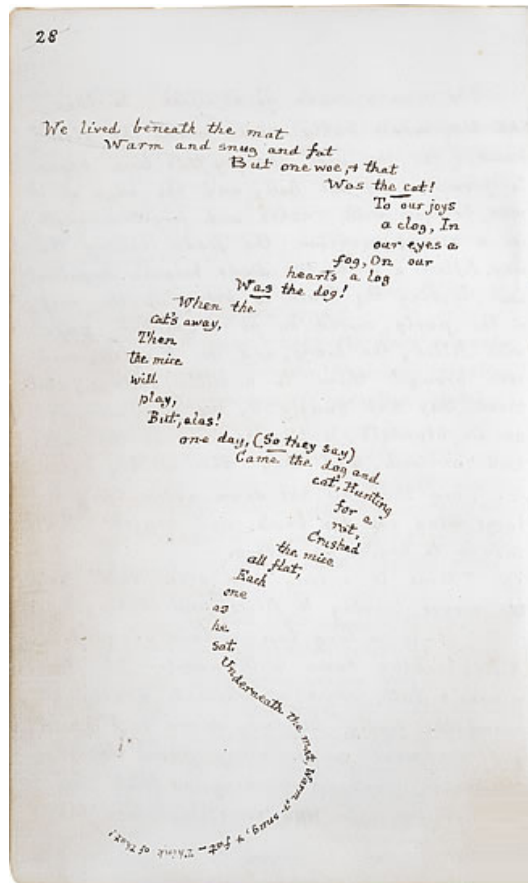 28
We lived beneath the mat
Warm and snug and fat
But one woe, & that
Was the cat!
To our joys
a clog, In
our eyes a
fog, On our
hearts a log
Was the dog!
When the
cat's away,
Then
the mice
will
play,
But, alas!
one day, (So they say)
Came the dog and
cat, Hunting
for a
rat,
Crushed
the mice
all flat,
Each
one
as
he
sat
Underneath the mat, Warm, & snug, & fat— Think of that!